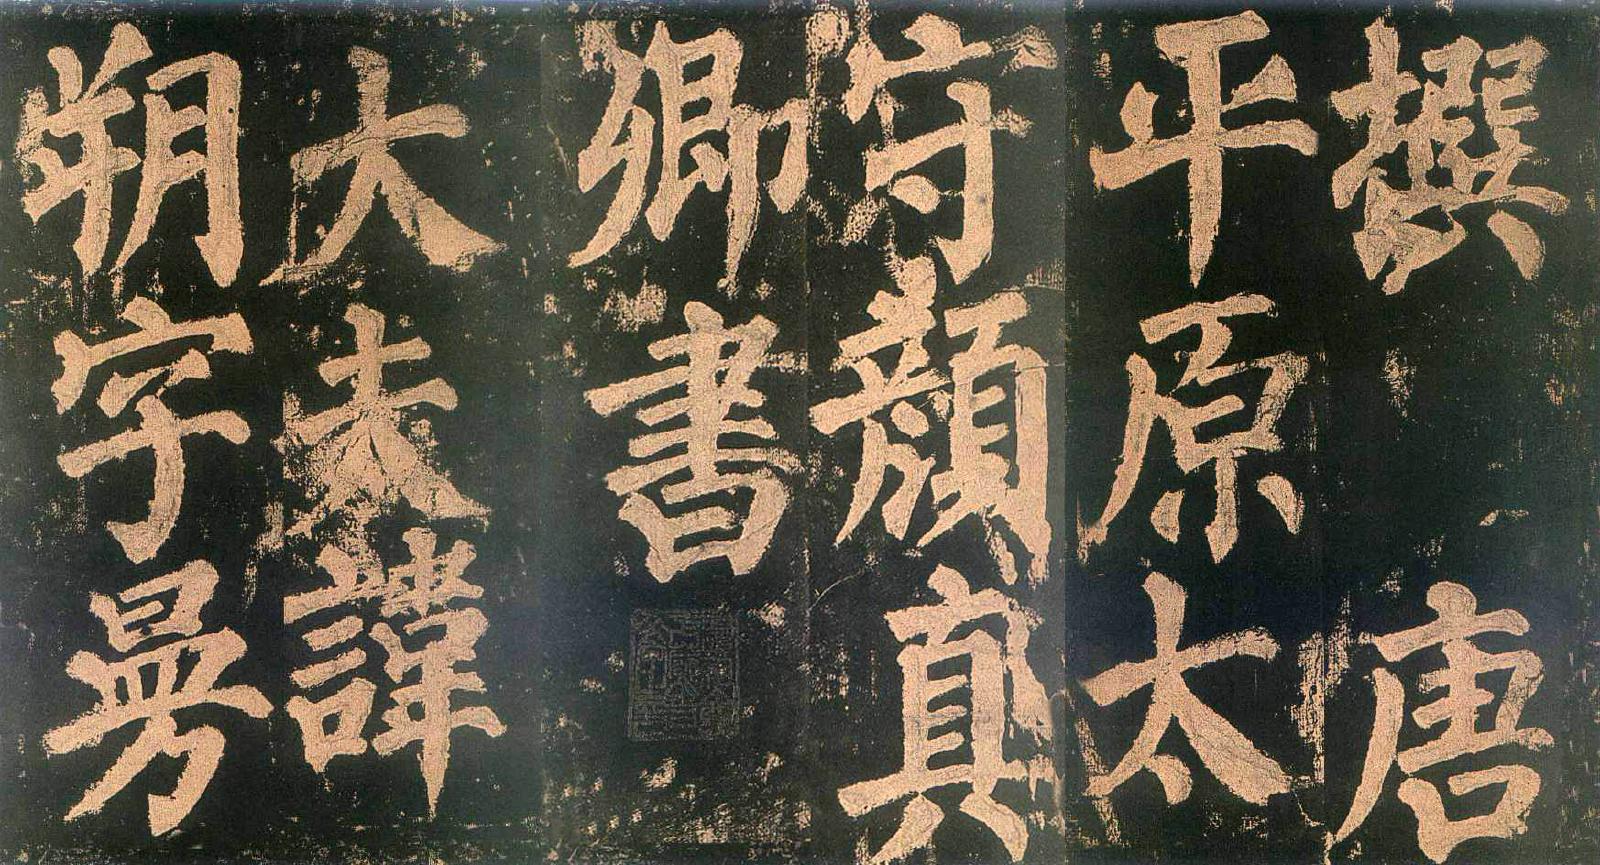 撰 唐
平原太
守顏真
卿書
大夫諱
朔字曼